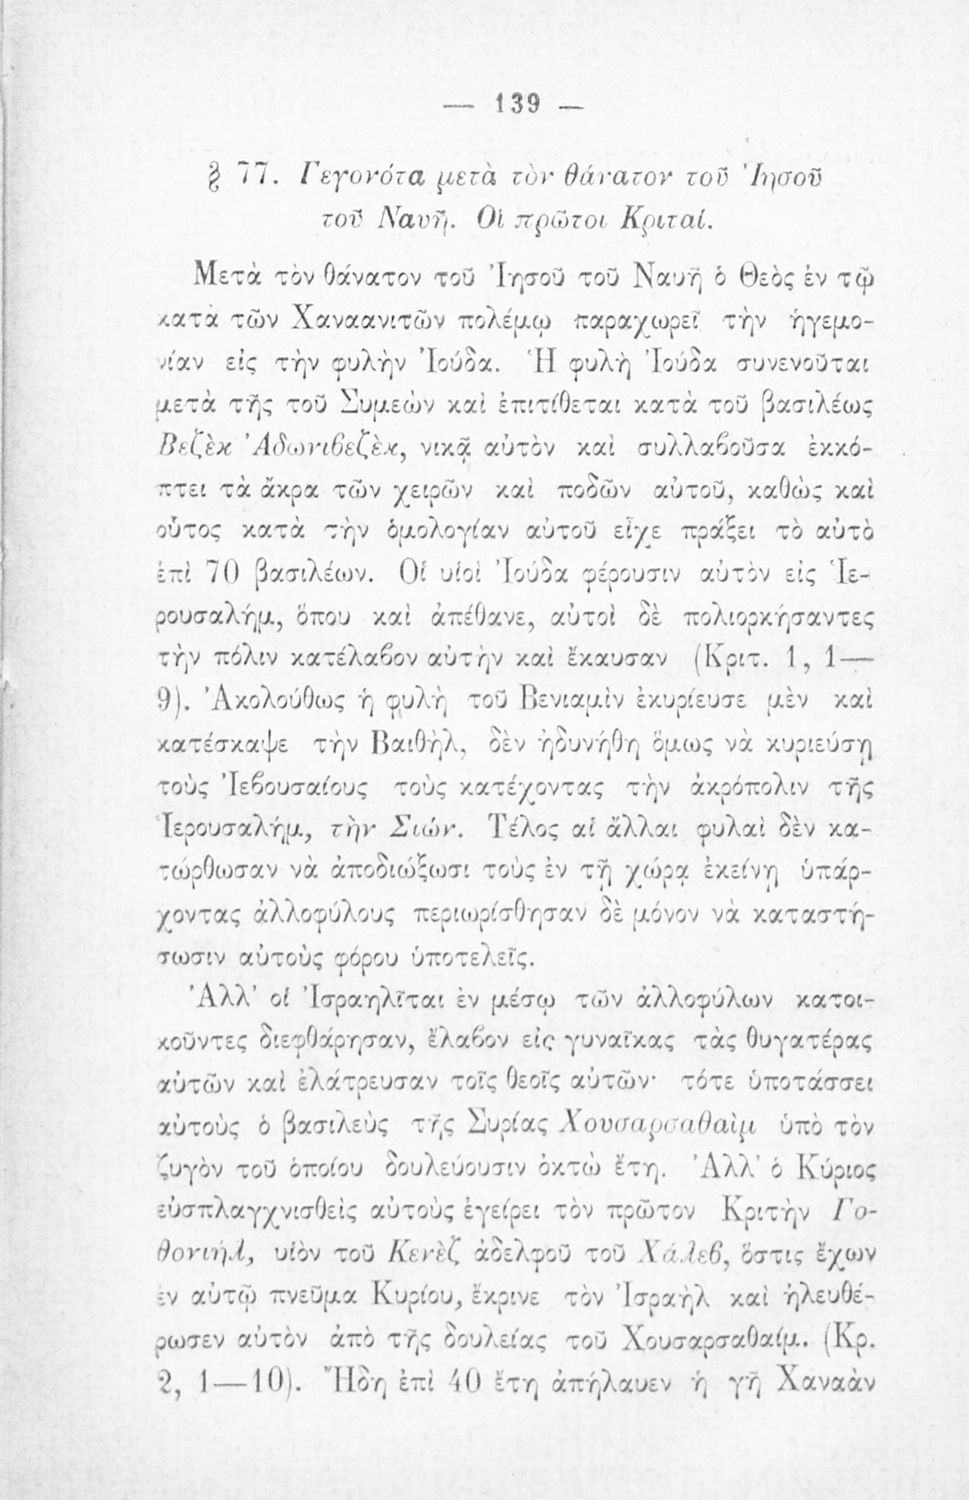 — 139 —
§ 77. Γεγονότα μετὰ τὸν θάνατον τοῦ Ἰησοῦ
τοῦ Ναυῆ. Οἱ πρῶτοι Κριταί.
Μετὰ τὸν θάνατον τοῦ Ἰησοῦ τοῦ Ναυῆ ὁ Θεὸς ἐν τῷ
κατὰ τῶν Χαναανιτῶν πολέμῳ παραχωρεῖ τὴν ἡγεμο-
νίαν εἰς τὴν φυλὴν Ἰούδα. Ἡ φυλὴ Ἰούδα συνενοῦται
μετὰ τῆς τοῦ Συμεὼν καὶ ἐπιτίθεται κατὰ τοῦ βασιλέως
Βεζὲκ Ἀδωνιβεζὲκ, νικᾷ αὐτὸν καὶ συλλαβοῦσα ἐκκό-
πτει τὰ ἄκρα τῶν χειρῶν καὶ ποδῶν αὐτοῦ, καθὼς καὶ
οὗτος κατὰ τὴν ὁμολογίαν αὐτοῦ εἶχε πράξει τὸ αὐτὸ
ἐπὶ 70 βασιλέων. Οἱ υἱοὶ Ἰούδα φέρουσιν αὐτὸν εἰς Ἱε-
ρουσαλήμ, ὅπου καὶ ἀπέθανε, αὐτοὶ δὲ πολιορκήσαντες
τὴν πόλιν κατέλαβον αὐτὴν καὶ ἔκαυσαν (Κριτ. 1, 1—
9). Ἀκολούθως ἡ φυλὴ τοῦ Βενιαμὶν ἐκυρίευσε μὲν καὶ
κατέσκαψε τὴν Βαιθὴλ, δὲν ἠδυνήθη ὅμως νὰ κυριεύσῃ
τοὺς Ἰεβουσαίους τοὺς κατέχοντας τὴν ἀκρόπολιν τῆς
Ἱερουσαλήμ, τὴν Σιών. Τέλος αἱ ἄλλαι φυλαὶ δὲν κα-
τώρθωσαν νὰ ἀποδιώξωσι τοὺς ἐν τῇ χώρᾳ ἐκείνῃ ὑπάρ-
χοντας ἀλλοφύλους περιωρίσθησαν δὲ μόνον νὰ καταστή-
σωσιν αὐτοὺς φόρου ὑποτελεῖς.
Ἀλλ' οἱ Ἰσραηλῖται ἐν μέσῳ τῶν ἀλλοφύλων κατοι-
κοῦντες διεφθάρησαν, ἔλαβον εἰς γυναῖκας τὰς θυγατέρας
αὐτῶν καὶ ἐλάτρευσαν τοῖς θεοῖς αὐτῶν· τότε ὑποτάσσει
αὐτοὺς ὁ βασιλεὺς τῆς Συρίας Χουσαρσαθαὶμ ὑπὸ τὸν
ζυγὸν τοῦ ὁποίου δουλεύουσιν ὀκτὼ ἔτη. Ἀλλ' ὁ Κύριος
εὐσπλαγχνισθεὶς αὐτοὺς ἐγείρει τὸν πρῶτον Κριτὴν Γο-
θονιὴλ, υἱὸν τοῦ Κενὲζ ἀδελφοῦ τοῦ Χάλεβ, ὅστις ἔχων
ἐν αὐτῷ πνεῦμα Κυρίου, ἔκρινε τὸν Ἰσραὴλ καὶ ἠλευθέ-
ρωσεν αὐτὸν ἀπὸ τῆς δουλείας τοῦ Χουσαρσαθαίμ. (Κρ.
2, 1—10). Ἤδη ἐπὶ 40 ἔτη ἀπήλαυεν ἡ γῆ Χαναὰν